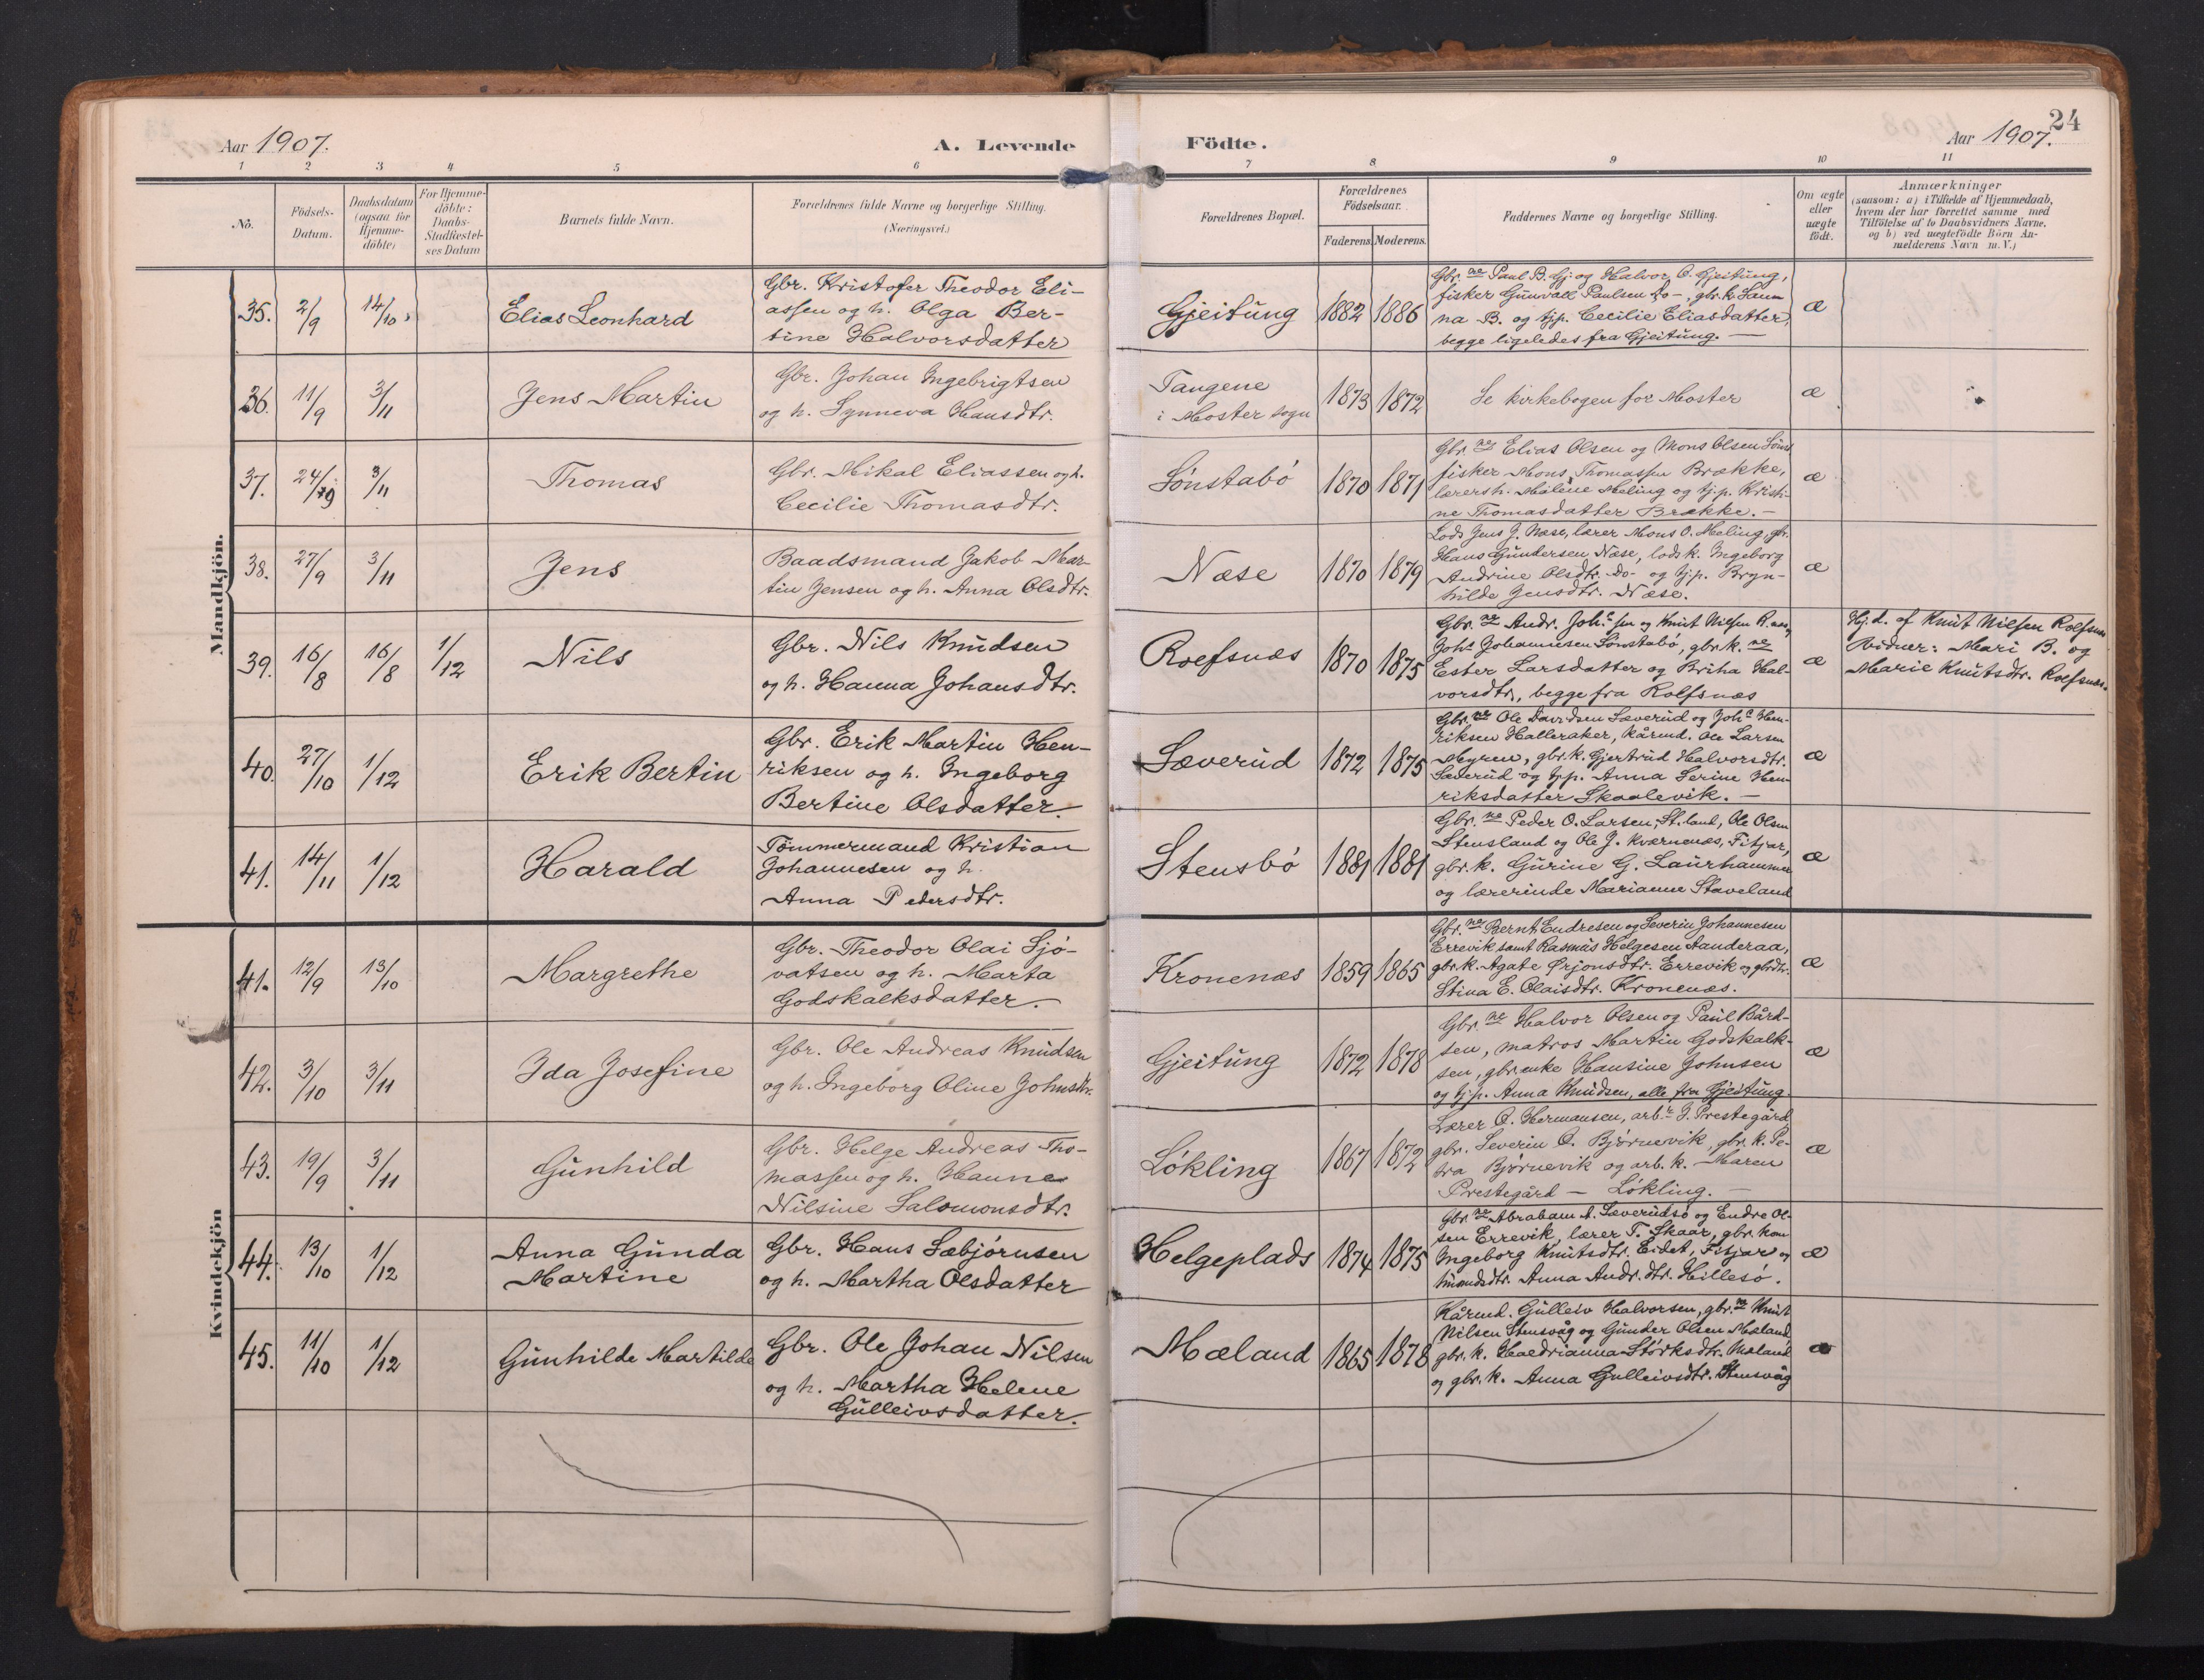 Aar 1907.
A. Levende
Födte.
24
Aar 1907.
1 2 3 4 5 6 7 8 9 10 11
No.
Födsels-
Datum.
Daabsdatum
(ogsaa for
Hjemme-
döbte)
For Hjemme-
döbte:
Daabs-
Stadfæstel-
ses Datum
Barnets fulde Navn.
Forældrenes fulde Navne og borgerlige Stilling.
(Næringsvei.)
Forældrenes Bopæl.
Forældrenes
Födselsaar.
Faderens. Moderens.
Faddernes Navne og borgerlige Stilling.
Om ægte
eller
uægte
födt.
Anmærkninger
(saasom: a) i Tilfælde af Hjemmedaab,
hvem der har forrettet samme med
Tilföielse af to Daabsvidners Navne,
og b) ved uægtefödte Börn An-
melderens Navn m. V.)
Mandkjön.
35. 2/9 14/10 Elias Leonhard
Gbr. Kristofer Theodor Eli-
assen og h. Olga Ber-
tine Halvorsdatter
Gjeitung 1882 1886
Gbr.ne Paul B. Gj. og Halvor O. Gjeitung,
fisker Gunvall Paulsen Do-, gbr.k. Sann
na B. og tjp. Cecilie Eliasdatter,
begge ligeledes fra Gjeitung. —
æ
36. 11/9 3/11 Jens Martin
Gbr. Johan Ingebrigtsen
og h. Synneva Hansdtr.
Tangene
i Moster sogn
1873 1872
Se kirkebogen for Moster
æ
37. 24/9 3/11 Thomas
Gbr. Mikal Eliassen og h.
Cecilie Thomasdtr.
Sönstabö 1870 1871
Gbr.ne Elias Olsen og Mons Olsen Sönst
fisker Mons Thomassen Brække,
lærersh. Malene Meling og tj.p. Kristi-
ne Thomasdatter Brække. —
æ
38. 27/9 3/11 Jens
Baadsmand Jakob Mar-
tin Jensen og h. Anna Olsdtr.
Næse 1870 1879
Lods Jens J. Næse, lærer Mons O. Meling, gbr.
Hans Gundersen Næse, lods k. Ingeborg
Andrine Olsdtr. Do- og tj.p. Bryn-
hilde Jensdtr. Næse.
æ
39. 16/8 16/8 1/12 Nils
Gbr. Nils Knudsen
og h. Hanna Johansdtr.
Rolfsnæs 1870 1875
Gbr.ne Andr. Joh.sen og Knut Nilsen R.næs,
Johs Johannesen Sönstabö, gbr.k.ne
Ester Larsdatter og Briha Hal-
vorsdtr, begge fra Rolfsnæs
æ
Hj.d. af Knut Nilsen Rolfsnæs
Vidner: Mari B. og
Marie Knutsdtr. Rolfsnæs.
40. 27/10 1/12 Erik Bertin
Gbr. Erik Martin Hen-
riksen og h. Ingeborg
Bertine Olsdatter.
Sæverud 1872 1875
Gbr.ne Ole Davidsen Sæverud og Johs Hen-
riksen Halleraker, kårmd. Ole Larsen
Myren, gbr.k. Gjertrud Halvorsdtr.
Sæverud og tjp. Anna Serine Hen-
riksdatter Skaalevik. —
æ
41. 14/11 1/12 Harald
Tömmermand Kristian
Johannesen og h.
Anna Pedersdtr.
Stensbö 1881 1881
Gbr.ne Peder O. Larsen, St.land, Ole Olsen
Stensland og Ole J. Kværnenæs, Fitjar,
gbr.k. Gurine G. Laurhammer
og lærerinde Marianne Staveland
æ
Kvindekjön
41. 12/9 13/10 Margrethe
Gbr. Theodor Olai Sjö-
vatsen og h. Marta
Godskalksdatter.
Kronenæs 1859 1865
Gbr.ne Bernt Endresen og Severin Johannesen
Errevik samt Rasmus Helgesen Aanderaa,
gbr.k. Agate Ørjonsdtr. Errevik og gbrdtr.
Stina E. Olaisdtr. Kronenæs.
æ
42. 3/10 3/11 Ida Josefine
Gbr. Ole Andreas Knudsen
og h. Ingeborg Oline Johnsdtr.
Gjeitung 1872 1878
Gbr.ne Halvor Olsen og Paul Bård-
sen, matros Martin Godskalk-
sen, gbr.enke Hansine Johnsen
og tj.p. Anna Knudsen, alle fra Gjeitung.
æ
43. 19/9 3/11 Gunhild
Gbr. Helge Andreas Tho-
massen og h. Hanne
Nilsine Salomonsdtr.
Lökling 1867 1872
Lærer O. Hermansen, arb.r J. Prestegård
gbr. Severin O. Björnevik, gbr.k. Pe-
tra Björnevik og arb.k. Maren
Prestegård — Lökling. —
æ
44. 13/10 1/12 Anna Gunda
Martine
Gbr. Hans Sæbjörnsen
og h. Martha Olsdatter
Helgeplads 1874 1875
Gbr.ne Abraham A. Sæverudsö og Endre Ol-
sen Errevik, lærer T. Skaar, gbr. kone
Ingeborg Knutsdtr. Eidet, Fitjar og
tmandsdtr. Anna Andr.dtr. Hillesö.
æ
45. 11/10 1/12 Gunhilde Martilde
Gbr. Ole Johan Nilsen
og h. Martha Helene
Gulleivsdatter.
Mæland 1865 1878
Kårmd. Gulleiv Halvorsen, gbr.ne Knut
Nilsen Stensvåg og Gunder Olsen Mæland
gbr.k. Haldrianna Störksdtr. Mæland
og gbr.k. Anna Gulleivsdtr. Stensvåg
æ